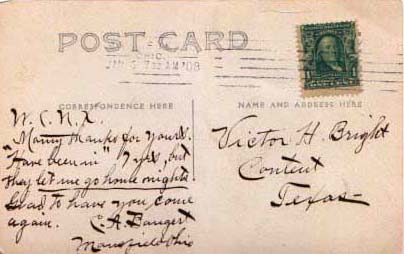 POST CARD
OHIO
JAN 5 7 30 AM '08
CORRESPONDENCE HERE
NAME AND ADDRESS HERE
W.C.N.X.
Many thanks for yours.
"Have been in" 7 yrs, but
they let me go home nights
Glad to have you come
again.
C. A. Bangert
Mansfield Ohio
Victor H. Bright
Content
Texas
1
1